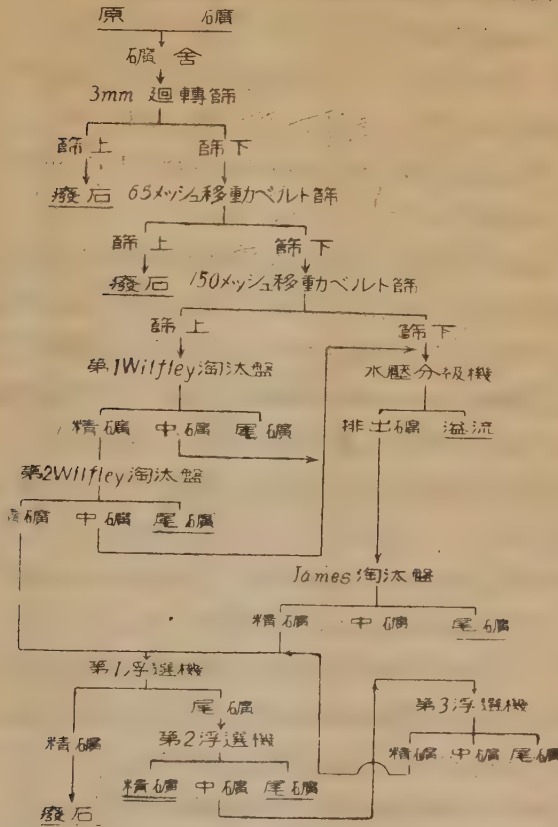 原 礦
礦舎
3mm 廻轉篩
篩上 篩下
廢石 65メッシュ移動ベルト篩
篩上 篩下
廢石 150メッシュ移動ベルト篩
篩上 篩下
第1Wilfley淘汰盤 水壓分級機
精礦 中礦 尾礦 排出礦 溢流
第2Wilfley淘汰盤
礦 中礦 尾礦
James淘汰盤
精礦 中礦 尾礦
第1浮選機
尾礦 第3浮選機
精礦 第2浮選機 精礦 中礦 尾礦
精礦 中礦 尾礦
廢石